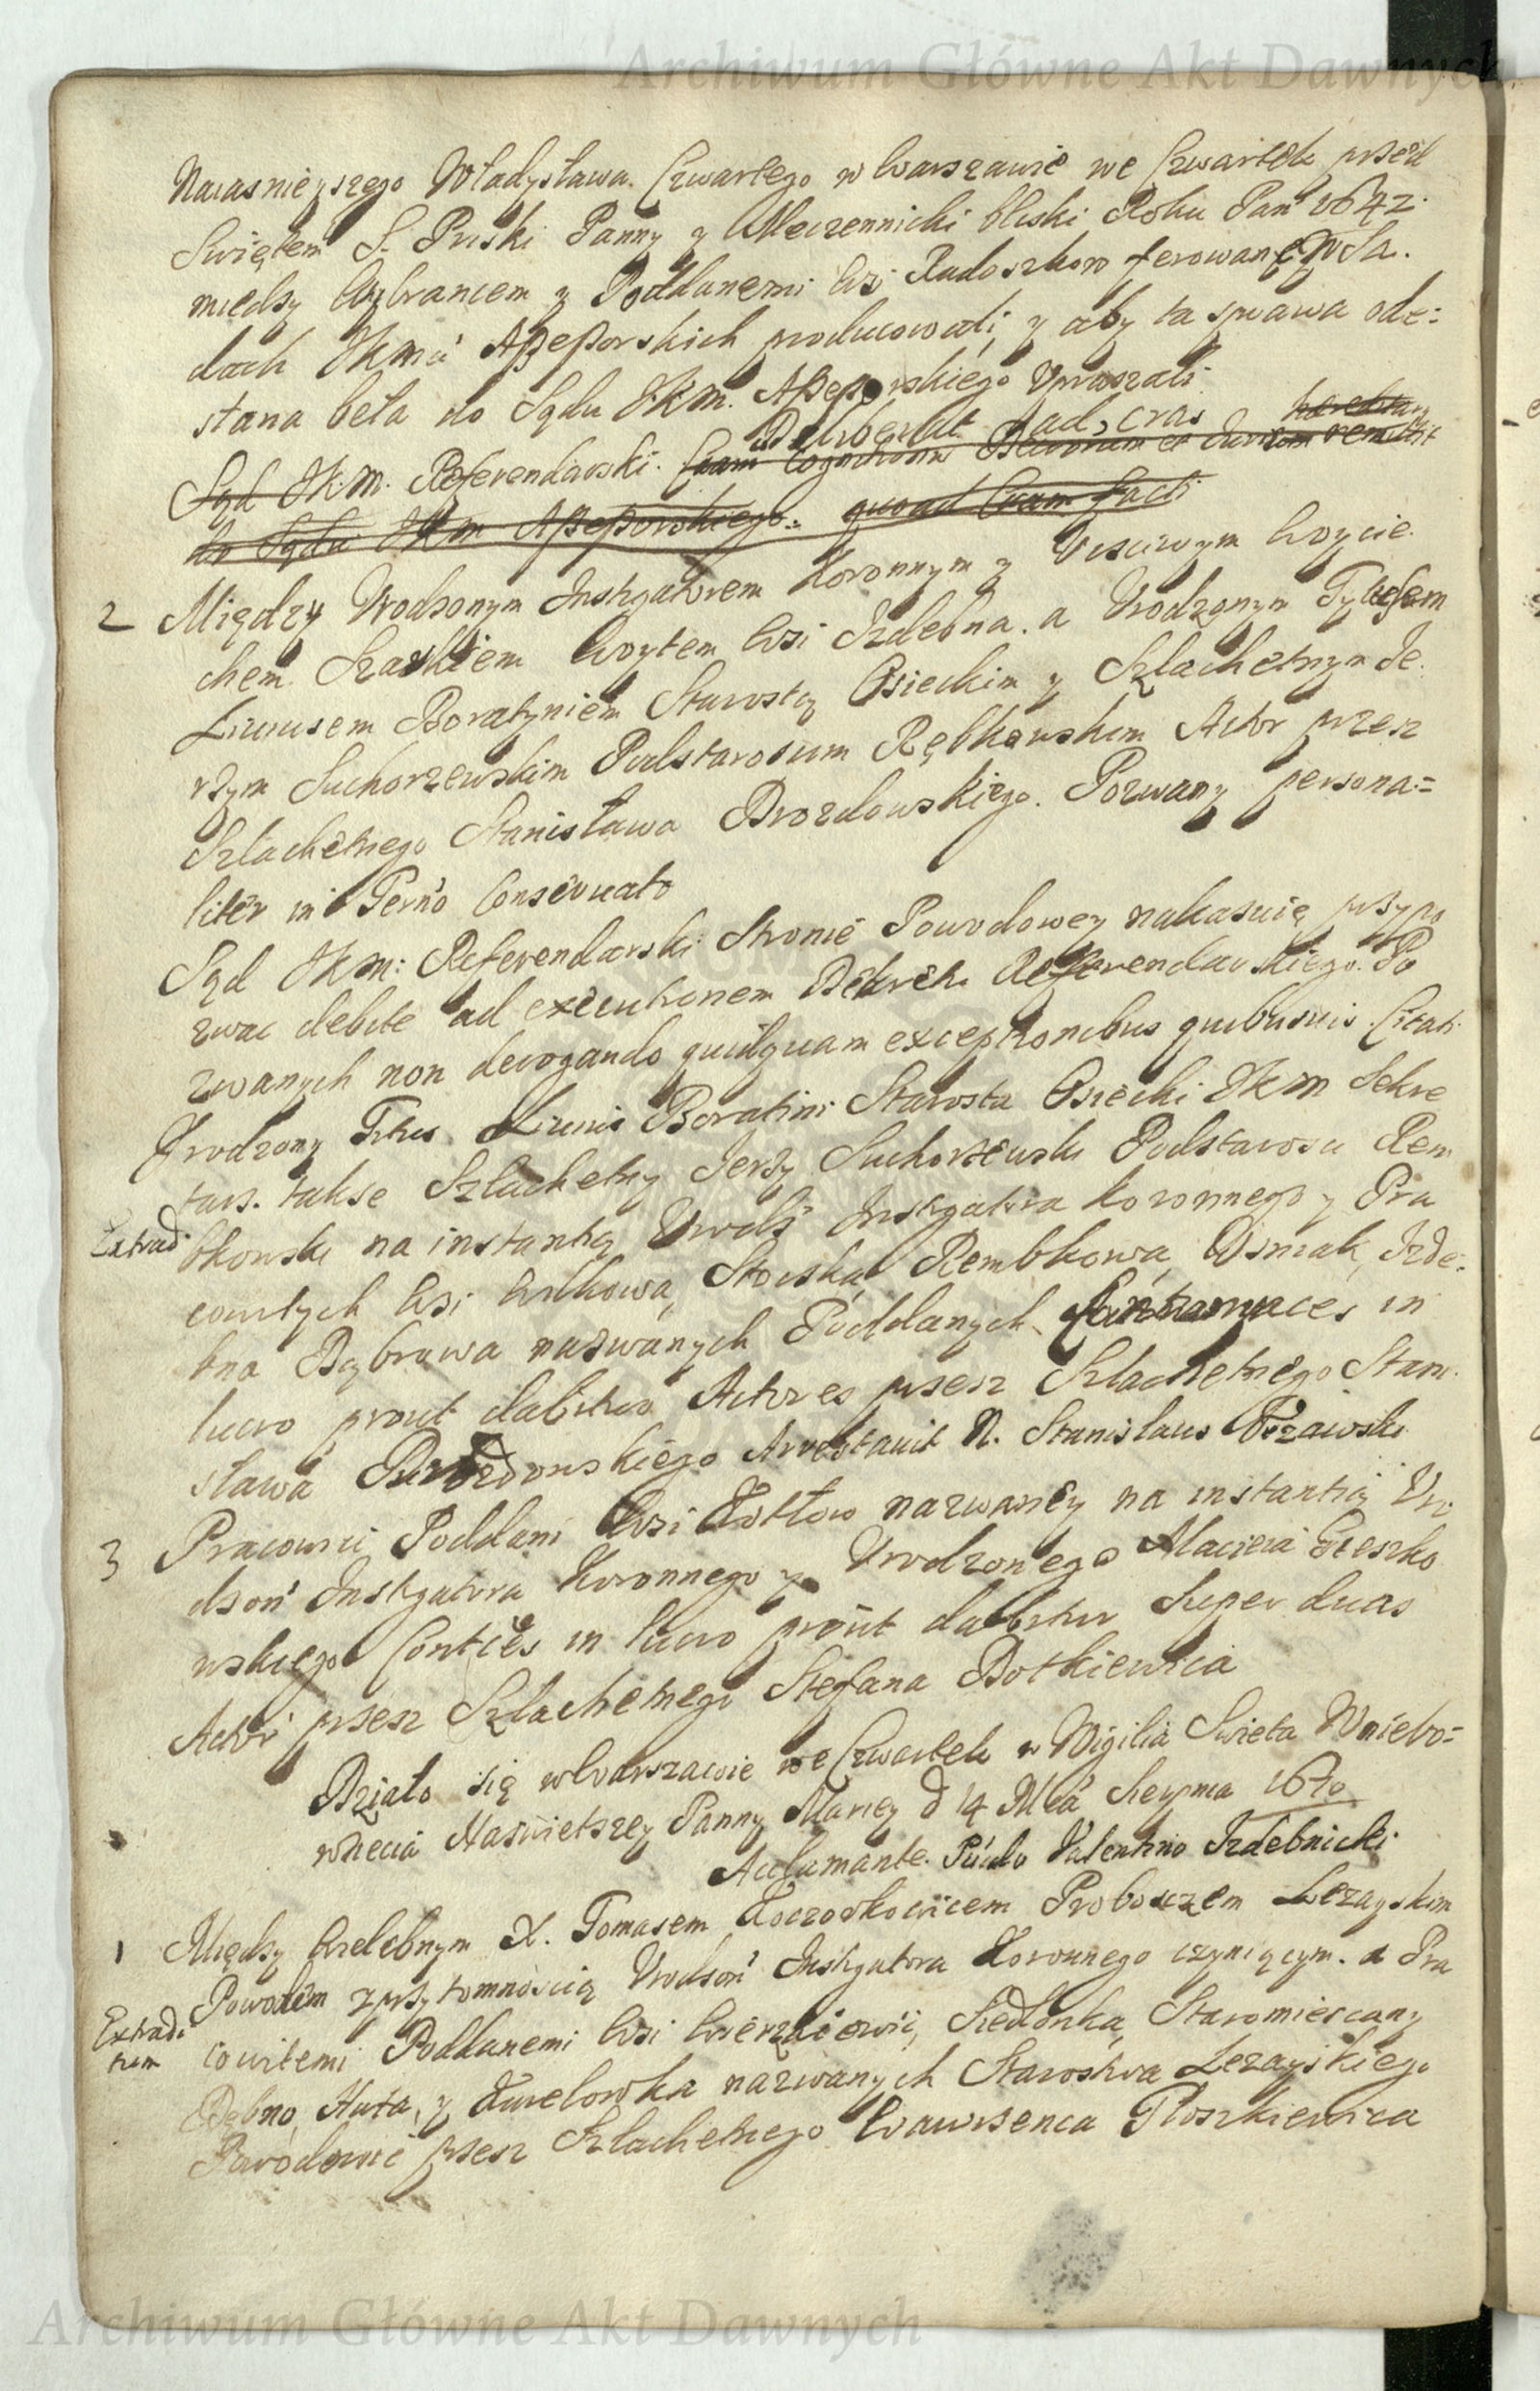 Archiwum Główne Akt Dawnych
Naiasnieyszego Władysława Czwartego w Warszawie we Czwartek przed
Swiętem S. Priski Panny y Męczennicki bliski Roku Pan 1642
miedzy Wybrancem y Poddanemi Wsi Radoszkow ferowane w Sa.
dach JKmci Assessorskich producowali, y aby ta sprawa ode=
słana beła do Sądu JKM. Assessorskiego upraszali
Deliberat ad cras
Sąd JKM. Referendarski
do Sądu JKM Assessorskiego quoad
2 Między Urodzonym Instigatorem Koronnym y Uczciwym Woycie.
chem Woytem Wsi Izdebna. a Urodzonym Tytusem
Liuiusem Boratyniem Starostą Osieckim y Szlachetnym Je.
rzym Suchorzewskim Podstarosim Rębkowskim Actor przez
Szlachetnego Stanisława Drozdowskiego. Pozwany persona=
liter in Termo Conseruato
Sąd JKM: Referendarski Stronie Powodowey nakasuię przypo
zwac debite ad executionem Dekretu Referendarskiego. Po
zwanych non derogando quidquam exceptionibus quibusuis Citati
Urodzony Titus Liuius Boratini Starosta Osiecki JKM Sekre
tarz. takse Szlachetny Jerzy Suchorzewski Podstarosci Rem
Extrad.
bkowski na instantią Urodz Instigatora koronnego y Pra
cowitych Wsi Wilkowa, Rembkowa, Izde=
bna Dąbrowa nazwanych Poddanych Contumaces in
lucro prout dabitur Actores przesz Szlachetnego Stani
sława Drozdowskiego Arrestauit N. Stanislaus
3 Pracowici Poddani Wsi nazwaney na instantią Uro
dzon Instigatora Koronnego y Urodzonego Macieia Cieszko
wskiego Conties in lucro prout dabitur Super duas
Actor przesz Szlachetnego Stefana Botkiewica
Działo się w Warszawie we Czwartek w Wigilia Swieta Wniebo=
wziecia Naswietszey Panny Mariey d 14 Mca Sierpnia 1670
Acclamante. Paulo Valentino Izdebnicki
1 Między Wielebnym X. Tomasem Proboszczem Lezayskim
Powodem z przytomnoscią Urodzon Instigatora Koronnego czyniącym. a Pra
Extradi
tum
cowitemi Poddanemi Wsi Wierzawic, Siedlonka, Staromiescany
Dębno, Huta, y nazwanych Starostwa Lezayskiego
Powodowie przesz Szlachetnego Wawrsenca Ploszkiewica
Archiwum Główne Akt Dawnych